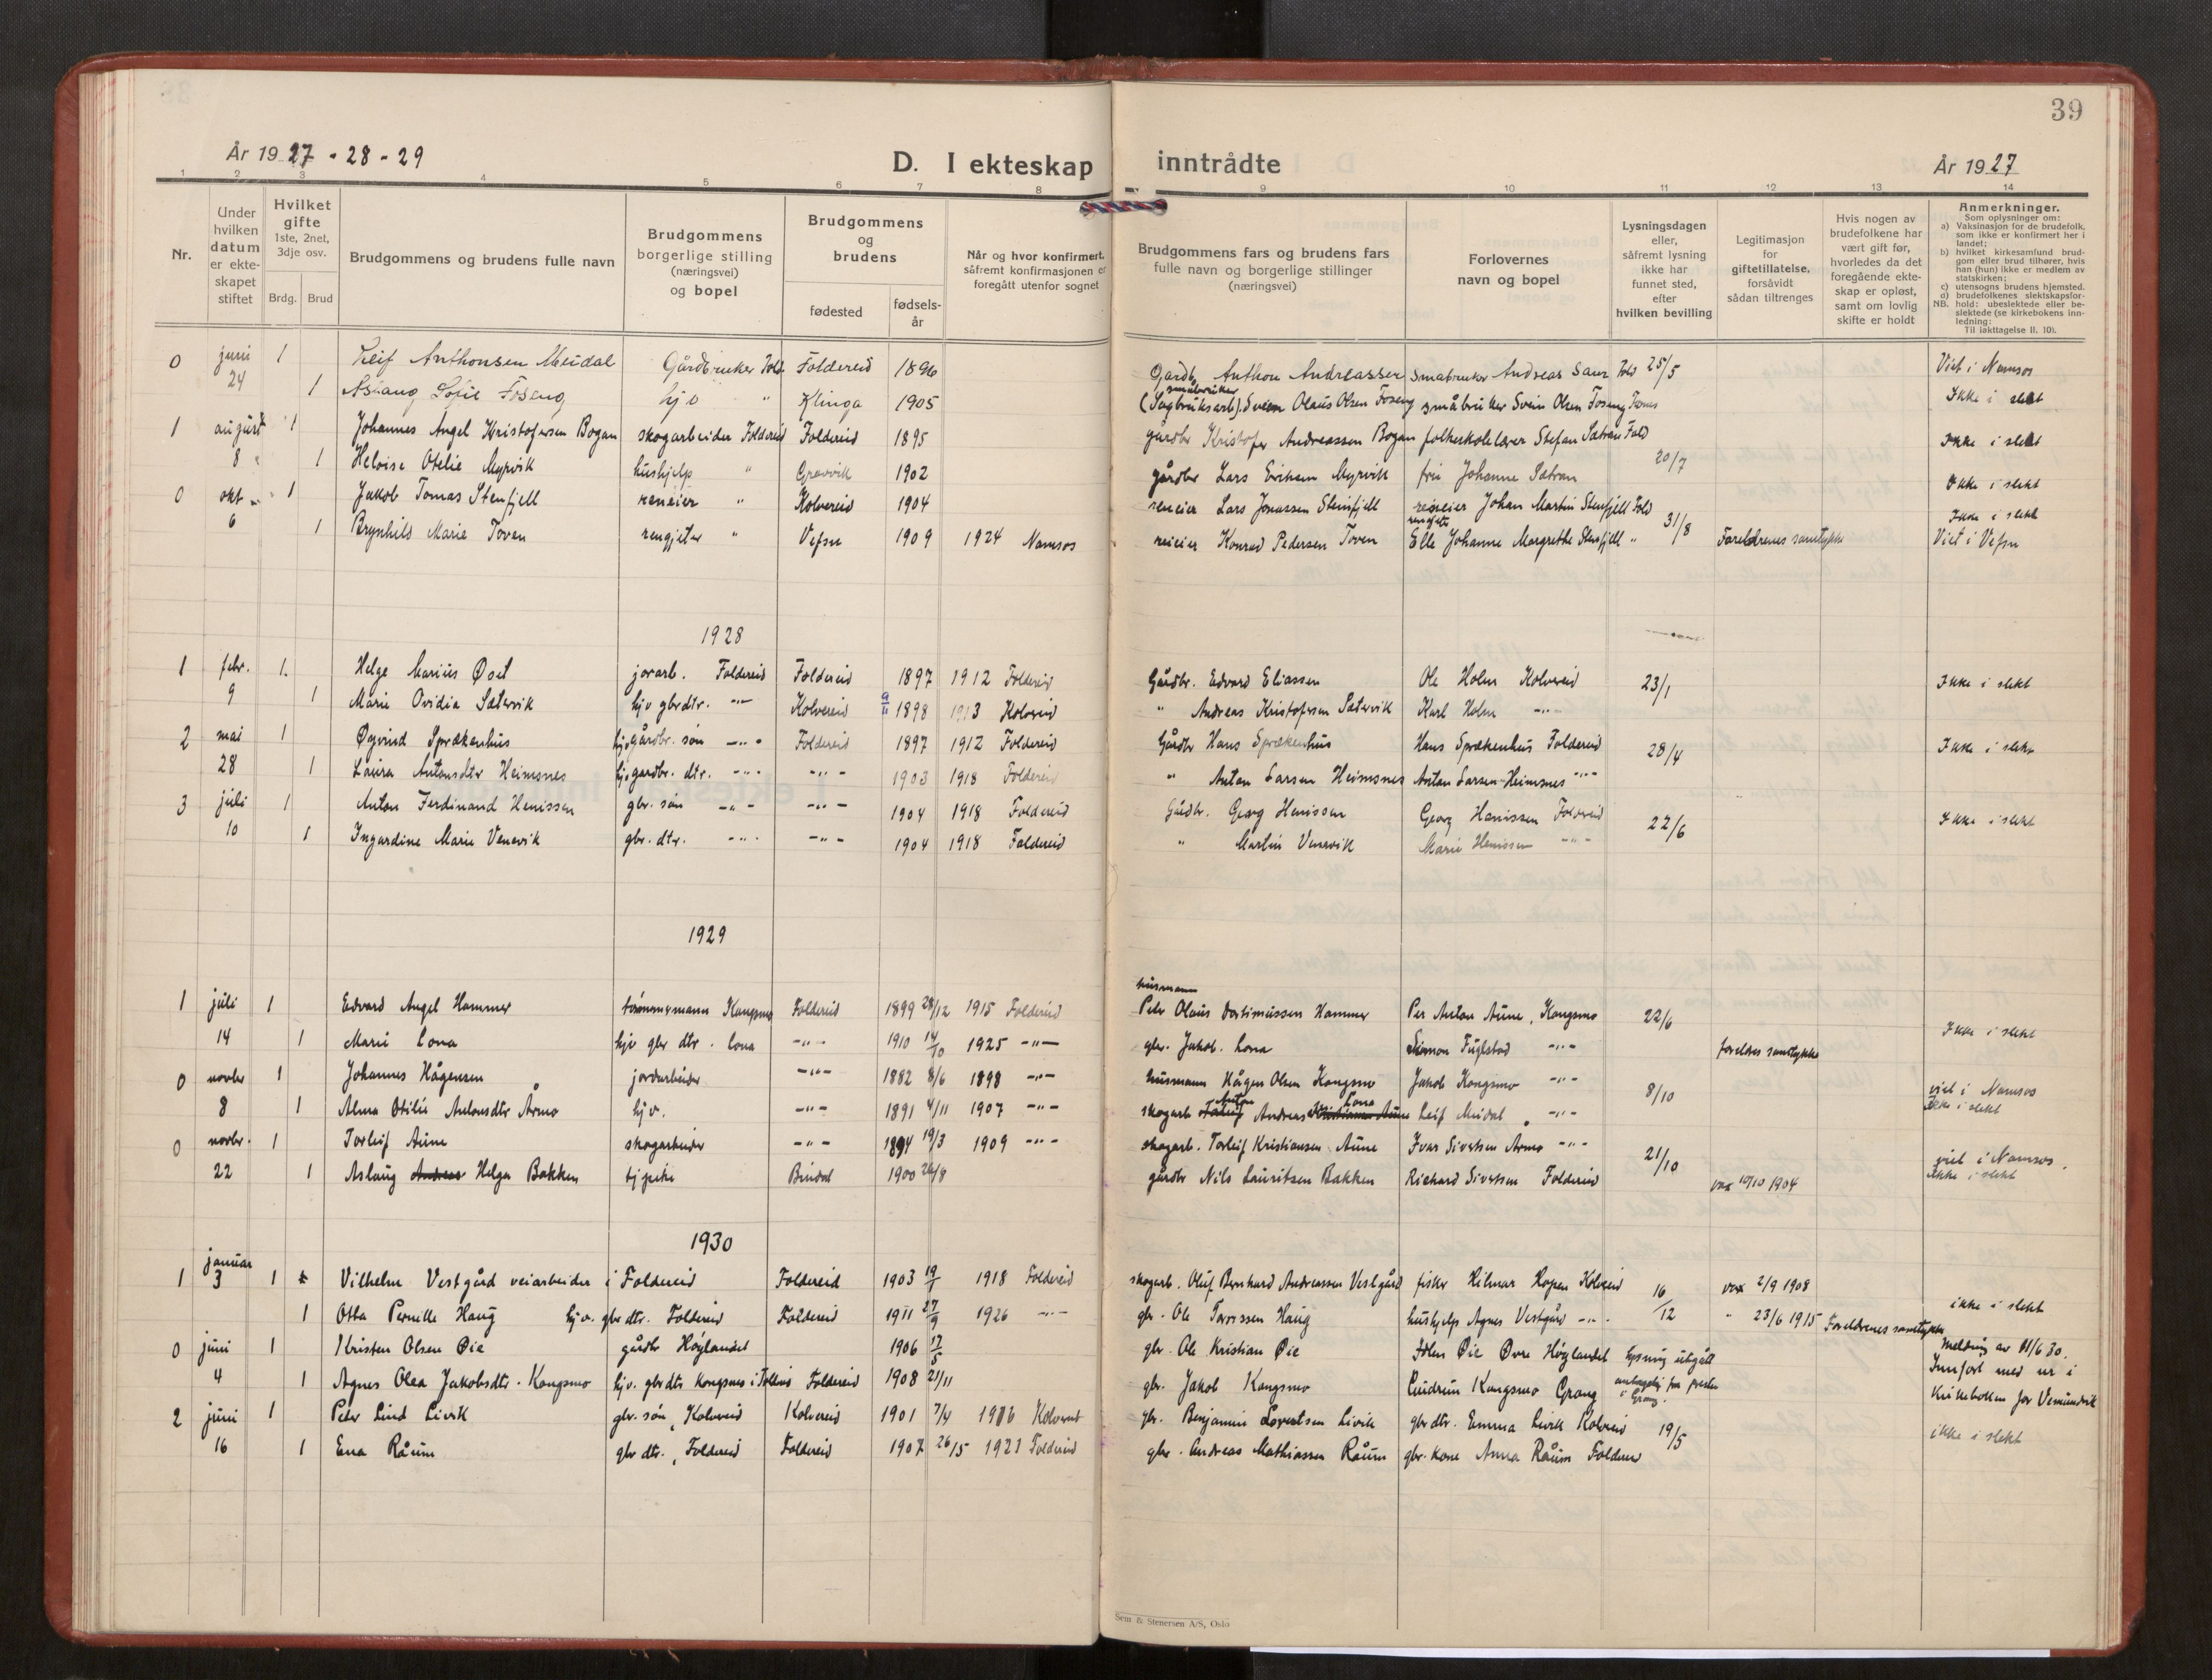 39
År 1927 - 28 - 29
D. I ekteskap inntrådte
År 1927
1 2 3 4 5 6 7 8 9 10 11 12 13 14
Nr.
Under hvilken datum er ekteskapet stiftet
Hvilket gifte 1ste, 2net, 3dje osv.
Brdg. Brud
Brudgommens og brudens fulle navn
Brudgommens borgerlige stilling (næringsvei) og bopel
Brudgommens og brudens
fødested
fødselsår
Når og hvor konfirmert, såfremt konfirmasjonen er foregått utenfor sognet
Brudgommens fars og brudens fars fulle navn og borgerlige stillinger (næringsvei)
Forlovernes navn og bopel
Lysningsdagen eller, såfremt lysning ikke har funnet sted, efter hvilken bevilling
Legitimasjon for giftetillatelse, forsåvidt sådan tiltrenges
Hvis nogen av brudefolkene har vært gift før, hvorledes da det foregående ekteskap er opløst, samt om lovlig skifte er holdt
Anmerkninger.
Som oplysninger om:
a) Vaksinasjon for de brudefolk, som ikke er konfirmert her i landet;
b) hvilket kirkesamfund brudgom eller brud tilhører, hvis han (hun) ikke er medlem av statskirken;
c) utensogns brudens hjemsted.
d) brudefolkenes slektskapsforhold: ubeslektede eller beslektede (se kirkebokens innledning:
NB.
Til iakttagelse II. 10).
0 juni 1 Leif Anthonsen Meidal Gårdbruker Fold. Foldereid 1896 Gardb. Anthon Andreassen småbruker Andreas Saur Fold 25/5 Viet i Namsos
24 1 Aslaug Sofie Foseng hjv " Klinga 1905 småbruker (Sagbruksarb.) Svein Olaus Olsen Foseng småbruker Svein Olsen Foseng Ikke i slekt
1 august 1 Johannes Angel Kristofersen Bogan skogarbeider Foldereid Foldereid 1895 gårdbr Kristofer Andreassen Bogan folkeskolelærer Stefan Sætran Fold 20/7 Ikke i slekt
8 1 Heloise Otelie Myrvik hushjelp " Gravvik 1902 gårdbr Lars Eriksen Myrvik fru Johanne Sætran
0 okt 1 Jakob Tomas Stenfjell reneier " Kolvereid 1904 reneier Lars Jonassen Stenfjell reneier Johan Martin Stenfjell Fold 31/8 Ikke i slekt
6 1 Brynhild Marie Toven rengjeter " Vefsn 1909 1924 Namsos reneier Konrad Pedersen Toven Elle Johanne Margrethe Stenfjell " Foreldrenes samtykke Ikke i slekt Viet i Vefsn
1928
1 febr. 1. Helge Marius Øset jorarb. Foldereid Foldereid 1897 1912 Foldereid Gårdbr. Edvard Eliassen Ole Holm Kolvereid 23/1 Ikke i slekt
9 1 Marie Ovidia Sætervik hjv gbrdtr. -"- Kolvereid 9/11 1898 1913 Kolvereid " Andreas Kristofersen Sætervik Karl Holm -"-
2 mai 1 Øyvind Sprækenhus gårdbr. søn -"- Foldereid 1897 1912 Foldereid Gårdbr Hans Sprækenhus Hans Sprækenhus Foldereid 28/4 Ikke i slekt
28 1 Laura Antonsdtr Heimsnes hjv gardbr. dtr. -"- -"- 1903 1918 Foldereid " Anton Larsen Heimsnes Anton Larsen Heimsnes -"-
3 juli 1 Anton Ferdinand Henissen gbr. søn -"- -"- 1904 1918 Foldereid Gårdbr. Georg Henissen Georg Henissen Foldereid 22/6 Ikke i slekt
10 1 Ingardine Marie Venevik gbr. dtr. -"- -"- 1904 1918 Foldereid " Martin Venevik Marie Henissen -"-
1929
1 juli 1 Edvard Angel Hammer tømmermann Kongsmo Foldereid 1899 28/12 1915 Foldereid husmann Peter Olaus Hammer Per Anton Aune, Kongsmo 22/6
14 1 Marie Lona hjv gbr dtr. Lona -"- 1910 14/10 1925 -"- gbr. Jakob Lona Simon Fuglstad -"- foreldres samtykke Ikke i slekt
0 novbr 1 Johannes Hågensen jordarbeider -"- 1882 8/6 1898 -"- husmann Hågen Olsen Kongsmo Jakob Kongsmo -"- 8/10 viet i Namsos
8 1 Alma Otilie Antonsdtr Årmo hjv. -"- 1891 4/11 1907 -"- skogarb Anton Andreas Lona Leif Meidal -"- Ikke i slekt
0 novbr. 1 Torleif Aune skogarbeider -"- 1894 19/3 1909 -"- skogarb. Torleif Kristiansen Aune Ivar Sivertsen Armo -"- 21/10 viet i Namsos.
22 1 Aslaug Helga Bakken Bindal 1900 26/8 gårdbr Nils Lauritsen Bakken Richard Sivertsen Foldereid vax 10/10 1904 Ikke i slekt
1930
1 januar 3 1 Vilhelm Vestgård veiarbeider i Foldereid Foldereid 1903 19/1 1918 Foldereid skogarb. Oluf Bernhard Andreassen Vestgård fisker Hilmar Hopen Kolvereid 16/12 vax 2/9 1908
1 Otta Pernille Haug hjv. gbr dtr. Foldereid Foldereid 1911 27/9 1926 -"- gbr. Ole Haug hushjelp Agnes Vestgård -"- " 23/6 1915 Foreldrenes samtykke ikke i slekt
0 juni 1 Kristen Olsen Øie gårdbr Høylandet 1906 17/5 gbr. Ole Kristian Øie Øie Øvre Høylandet lysning utgått Melding av 11/6 30.
4 1 Agnes Olea Jakobsdtr. Kongsmo hjv. gbr dtr Kongsmo i Foldereid Foldereid 1908 21/11 gbr. Jakob Kongsmo Gudrun Kongsmo Grong i Grong. Innført med nr i
2 juni 1 Peter Lind Livik gbr. søn, Kolvereid Kolvereid 1901 7/4 1916 Kolvereid gbr. Benjamin Lorentsen Livik gbr dtr. Emma Livik Kolvereid 19/5 Kirkeboken for Vemundvik
16 1 Ena Råum gbr dtr., Foldereid Foldereid 1907 26/5 1921 Foldereid gbr. Andreas Mathiassen Råum gbr. kone Anna Råum Foldereid ikke i slekt
Sem & Stenersen A/S, Oslo